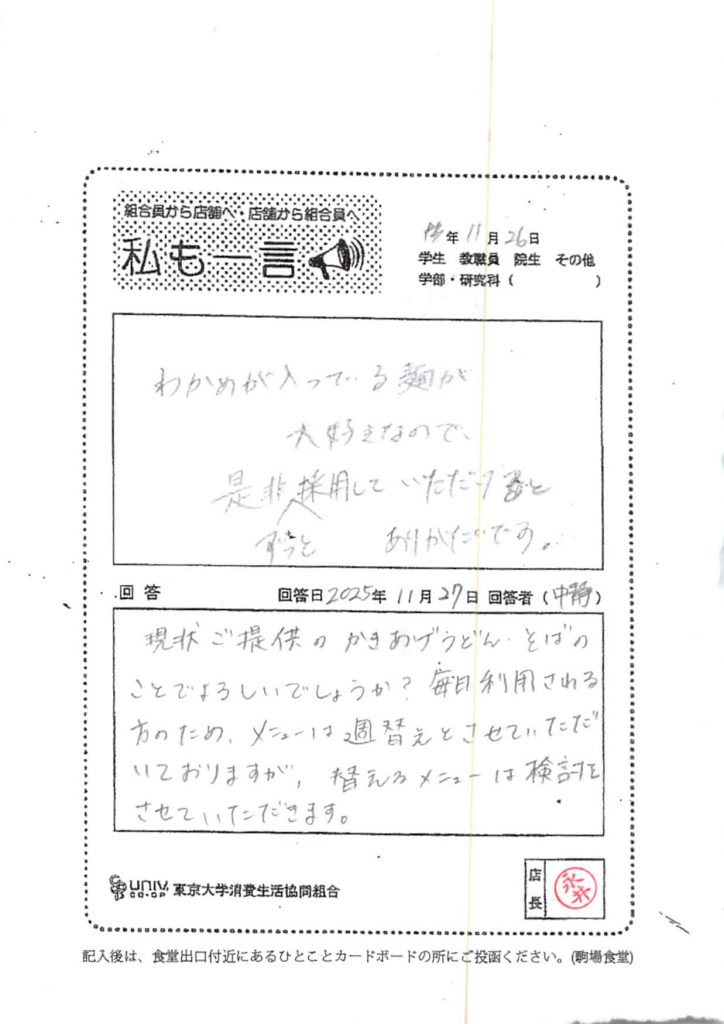 組合員から店舗へ・店舗から組合員へ
私も一言
年 11月 26日
学生 教職員 院生 その他
学部・研究科( )
わかめが入っている麺が
大好きなので、
是非採用していただけると
ずっと ありがたいです。
回答 回答日2025年 11月 27日 回答者(中静)
現状ご提供のかきあげうどん・そばの
ことでよろしいでしょうか? 毎日利用される
方のため、メニューは週替えとさせていただ
いておりますが、替えるメニューは検討を
させていただきます。
UNIV CO-OP 東京大学消費生活協同組合
店長
記入後は、食堂出口付近にあるひとことカードボードの所にご投函ください。(駒場食堂)